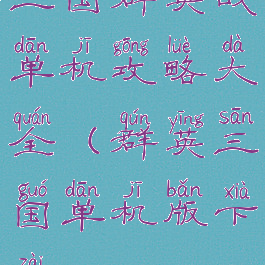 三国群英战
dān jī gōng lüè dà
单机攻略大
quán qún yīng sān
全（群英三
guó dān jī bǎn xià
国单机版下
zài